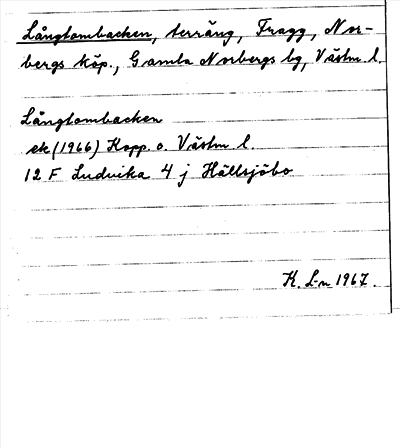 Långtombacken, terräng, Fragg, Nor-
bergs köp., Gamla Norbergs bg, Västm. l.
Långtombacken
ek (1966) Kopp. o. Västm l.
12 F Ludvika 4 j Hällsjöbo
K. L-n 1967.